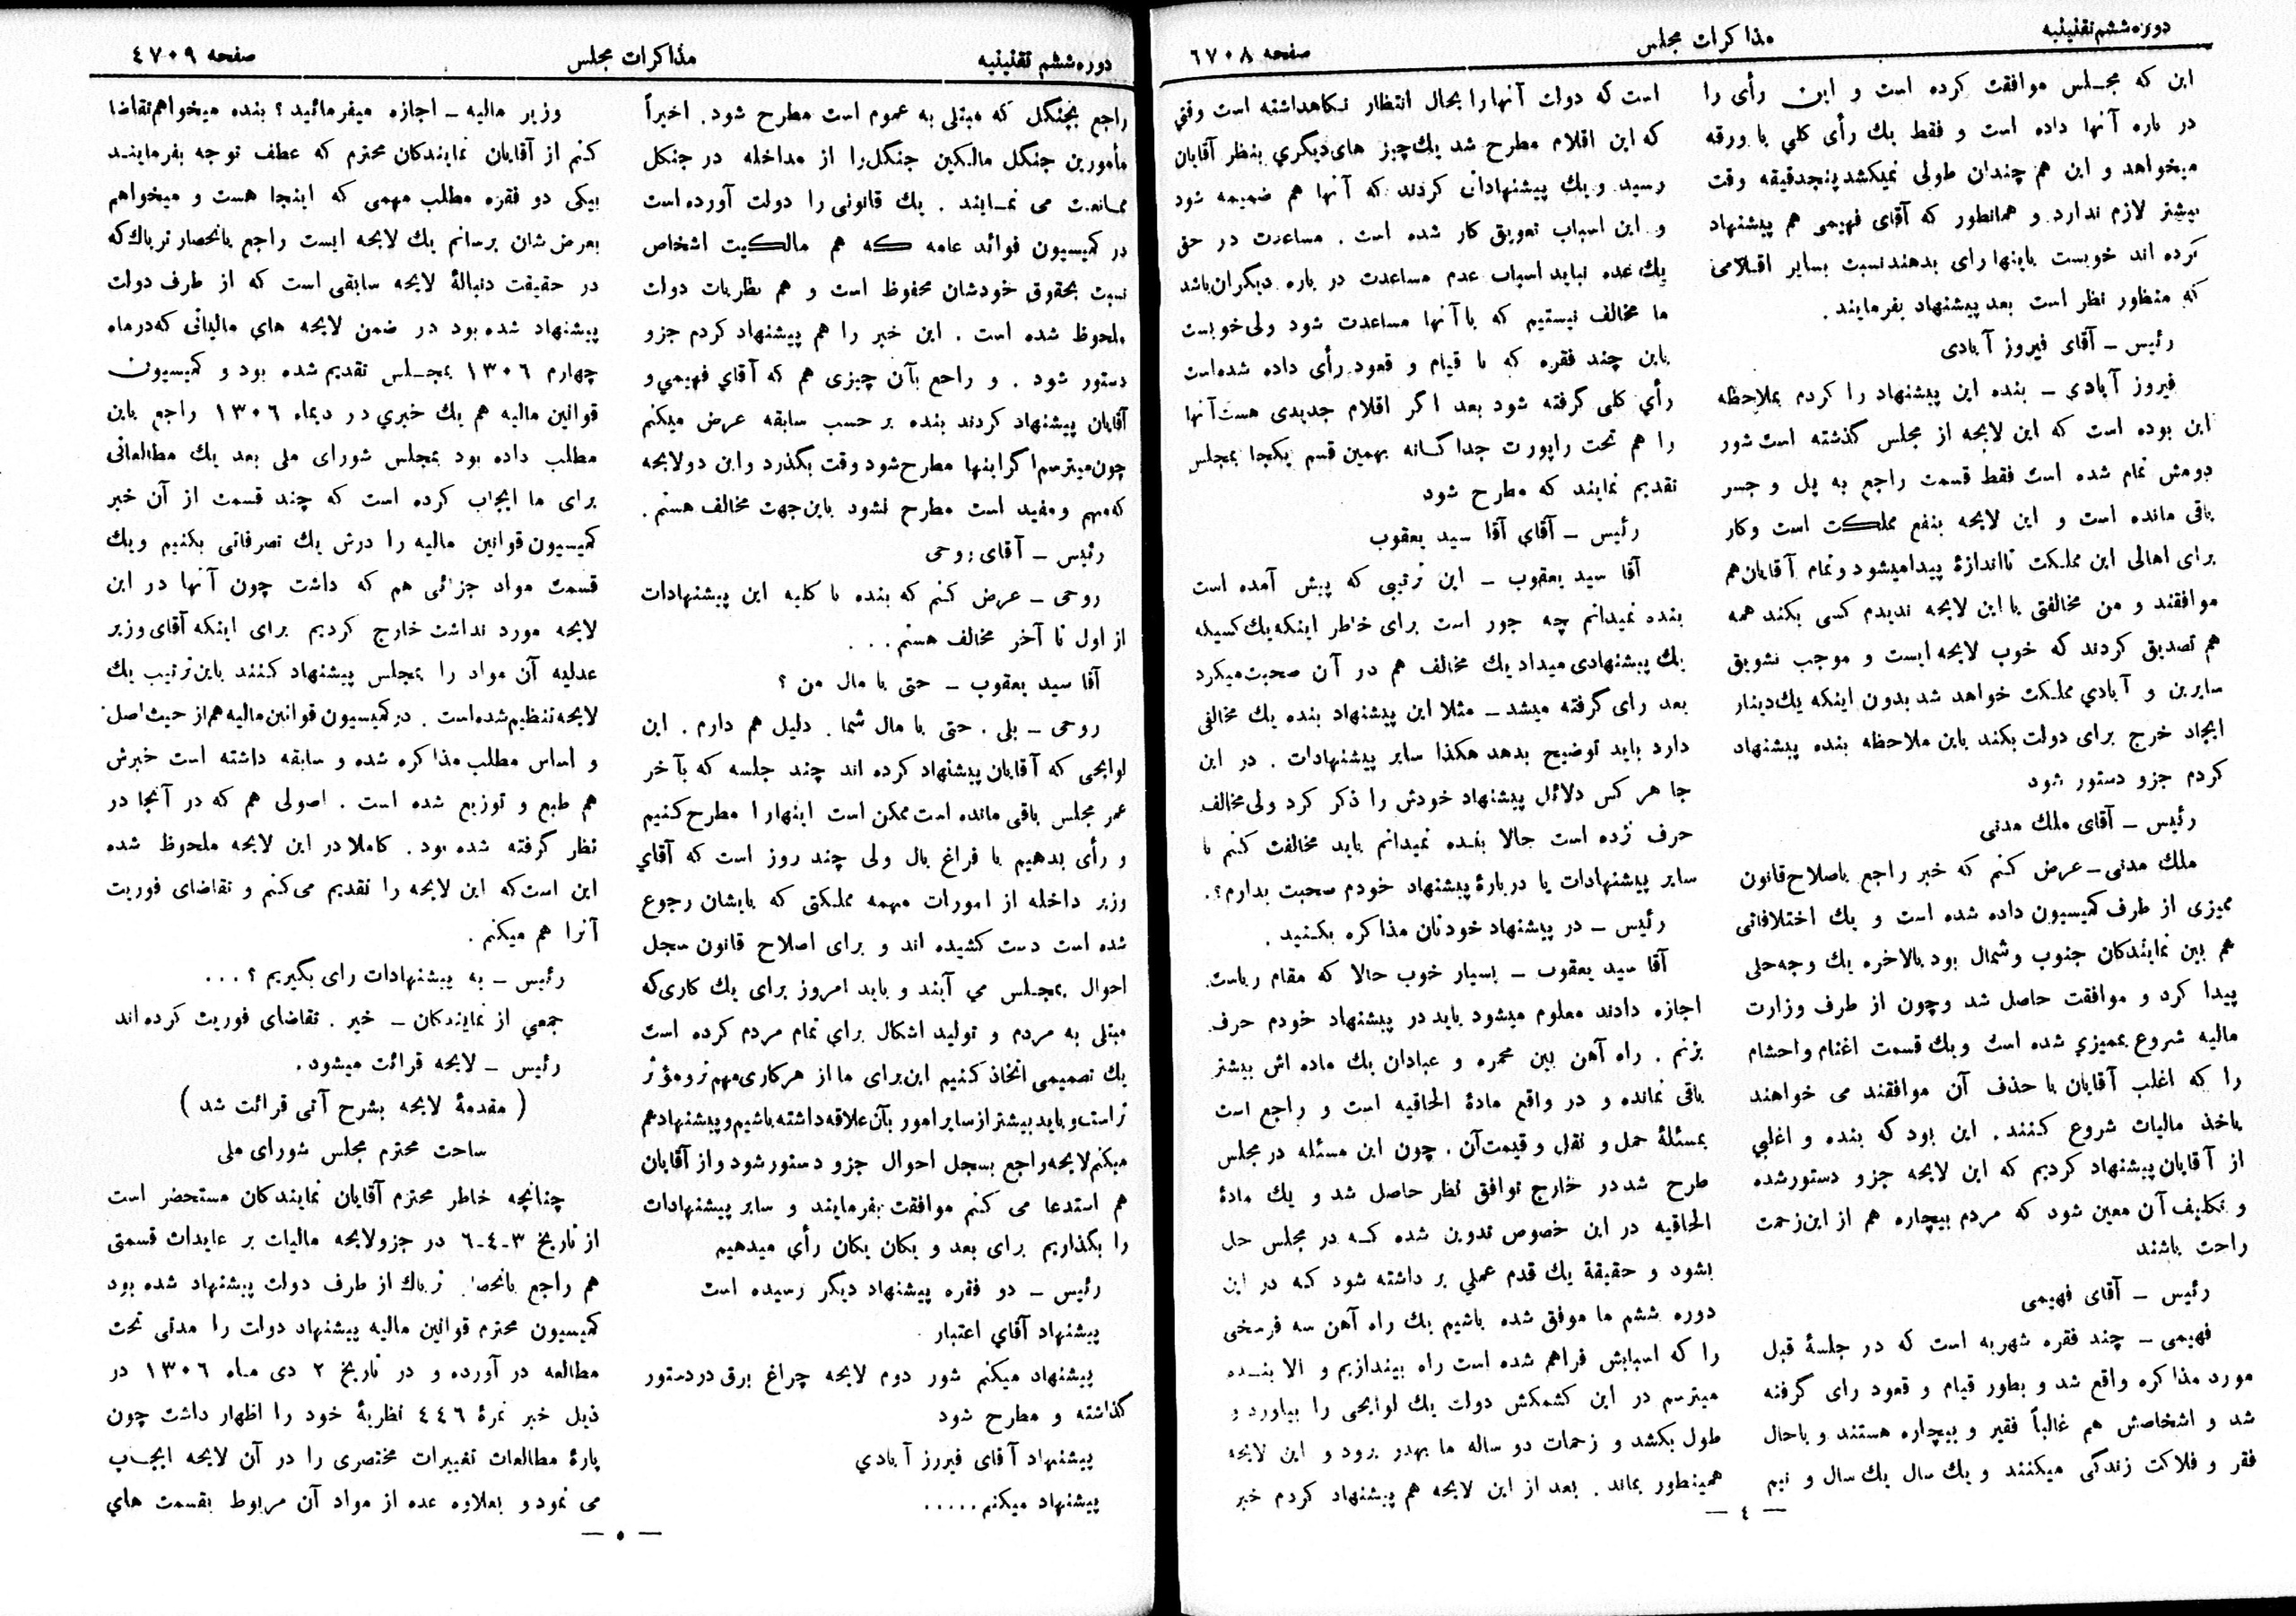 دوره ششم تقنینیه
مذاکرات مجلس
صفحه ٦٧٠٨
این که مجلس موافقت کرده است و این رأی را
در باره آنها داده است و فقط یك رأی کلي با ورقه
میخواهد و این هم چندان طولی نمیکشد پنجدقیقه وقت
بیشتر لازم ندارد و همانطور که آقای فهیمی هم پیشنهاد
کرده اند خوبست باینها رای بدهند نسبت بسایر اقلامی
که منظور نظر است بعد پیشنهاد بفرمایند .
رئیس ــ آقای فیروز آبادی
فیروز آبادي ــ بنده این پیشنهاد را کردم بملاحظه
این بوده است که این لایحه از مجلس گذشته است شور
دومش تمام شده است فقط قسمت راجع به پل و جسر
باقی مانده است و این لایحه بنفع مملکت است و کار
برای اهالی این مملکت تا اندازهٔ پیدا میشود و تمام آقایان هم
موافقند و من مخالفتی با این لایحه ندیدم کسی بکند همه
هم تصدیق کردند که خوب لایحه ایست و موجب تشویق
سایرین و آبادي مملکت خواهد شد بدون اینکه یك دینار
ایجاد خرج برای دولت بکند باین ملاحظه بنده پیشنهاد
کردم جزو دستور شود
رئیس ــ آقای ملك مدنی
ملك مدنی ــ عرض کنم که خبر راجع باصلاح قانون
ممیزی از طرف کمیسیون داده شده است و یك اختلافاتی
هم بین نمایندکان جنوب و شمال بود بالاخره یك وجه حلی
پیدا کرد و موافقت حاصل شد و چون از طرف وزارت
مالیه شروع بممیزي شده است و یك قسمت اغنام و احشام
را که اغلب آقایان با حذف آن موافقند می خواهند
باخذ مالیات شروع کنند . این بود که بنده و اغلبي
از آقایان پیشنهاد کردیم که این لایحه جزو دستور شده
و تکلیف آن معین شود که مردم بیچاره هم از این زحمت
راحت باشند
رئیس ــ آقای فهیمی
فهیمی ــ چند فقره شهریه است که در جلسهٔ قبل
مورد مذاکره واقع شد و بطور قیام و قعود رای گرفته
شد و اشخاصش هم غالباً فقیر و بیچاره هستند و باحال
فقر و فلاکت زندگی میکنند و یك سال یك سال و نیم
است که دولت آنها را بحال انتظار نکاهداشته است وقتي
که این اقلام مطرح شد یك چیز های دیگري بنظر آقایان
رسید و یك پیشنهاداتی کردند که آنها هم ضمیمه شود
و این اسباب تعویق کار شده است . مساعدت در حق
یك عده نباید اسباب عدم مساعدت در باره دیگران باشد
ما مخالف نیستیم که با آنها مساعدت شود ولی خوبست
باین چند فقره که با قیام و قعود رأی داده شده است
رأي کلی گرفته شود بعد اگر اقلام جدیدی هست آنها
را هم تحت راپورت جداگانه بهمین قسم یکجا بمجلس
تقدیم نمایند که مطرح شود
رئیس ــ آقاي آقا سید یعقوب
آقا سید یعقوب ــ این ترتیبی که پیش آمده است
بنده نمیدانم چه جور است برای خاطر اینکه یك کسیکه
یك پیشنهادی میداد یك مخالف هم در آن صحبت میکرد
بعد رای گرفته میشد ــ مثلا این پیشنهاد بنده یك مخالفی
دارد باید توضیح بدهد هکذا سایر پیشنهادات . در این
جا هر کس دلائل پیشنهاد خودش را ذکر کرد ولی مخالف
حرف نزده است حالا بنده نمیدانم باید مخالفت کنم با
سایر پیشنهادات یا در بارهٔ پیشنهاد خودم صحبت بدارم؟.
رئیس ــ در پیشنهاد خودتان مذاکره بکنید .
آقا سید یعقوب ــ بسیار خوب حالا که مقام ریاست
اجازه دادند معلوم میشود باید در پیشنهاد خودم حرف
بزنم . راه آهن بین محمره و عبادان یك ماده اش بیشتر
باقی نمانده و در واقع مادهٔ الحاقیه است و راجع است
بمسئلهٔ حمل و نقل و قیمت آن . چون این مسئله در مجلس
طرح شد در خارج توافق نظر حاصل شد و یك مادهٔ
الحاقیه در این خصوص تدوین شده که در مجلس حل
بشود و حقیقة یك قدم عملي بر داشته شود که در این
دوره ششم ما موفق شده باشیم یك راه آهن سه فرسخی
را که اسبابش فراهم شده است راه بیندازیم و الا بنده
میترسم در این کشمکش دولت یك لوایحی را بیاورد و
طول بکشد و زحمات دو ساله ما بهدر برود و این لایحه
همینطور بماند . بعد از این لایحه هم پیشنهاد کردم خبر
— ٤ —
دوره ششم تقنینیه
مذاکرات مجلس
صفحه ٤٧٠٩
راجع بجنگل که مبتلی به عموم است مطرح شود . اخیراً
مأمورین جنگل مالکین جنگل را از مداخله در جنگل
ممانعت می نمایند . یك قانونی را دولت آورده است
در کمیسیون فوائد عامه که هم مالکیت اشخاص
نسبت بحقوق خودشان محفوظ است و هم نظریات دولت
ملحوظ شده است . این خبر را هم پیشنهاد کردم جزو
دستور شود . و راجع بآن چیزی هم که آقاي فهیمي و
آقایان پیشنهاد کردند بنده بر حسب سابقه عرض میکنم
چون میترسم اگر اینها مطرح شود وقت بگذرد و این دو لایحه
که مهم و مفید است مطرح نشود باین جهت مخالف هستم .
رئیس ــ آقای روحی
روحی ــ عرض کنم که بنده با کلیه این پیشنهادات
از اول تا آخر مخالف هستم . . .
آقا سید یعقوب ــ حتی با مال من ؟
روحی ــ بلی . حتی با مال شما . دلیل هم دارم . این
لوایحی که آقایان پیشنهاد کرده اند چند جلسه که بآخر
عمر مجلس باقی مانده است ممکن است اینها را مطرح کنیم
و رأی بدهیم با فراغ بال ولی چند روز است که آقاي
وزیر داخله از امورات مهمه مملکتی که بایشان رجوع
شده است دست کشیده اند و برای اصلاح قانون سجل
احوال بمجلس مي آیند و باید امروز برای یك کاری که
مبتلی به مردم و تولید اشکال براي تمام مردم کرده است
یك تصمیمی اتخاذ کنیم این برای ما از هر کاری مهم تر و مؤثر
تر است و باید بیشتر از سایر امور بآن علاقه داشته باشیم و پیشنهاد هم
میکنم لایحه راجع بسجل احوال جزو دستور شود و از آقایان
هم استدعا می کنم موافقت بفرمایند و سایر پیشنهادات
را بگذاریم برای بعد و یکان یکان رأي میدهیم
رئیس ــ دو فقره پیشنهاد دیگر رسیده است
پیشنهاد آقاي اعتبار
پیشنهاد میکنم شور دوم لایحه چراغ برق در دستور
گذاشته و مطرح شود
پیشنهاد آقای فیروز آبادي
پیشنهاد میکنم . . . . .
وزیر مالیه ــ اجازه میفرمائید ؟ بنده میخواهم تقاضا
کنم از آقایان نمایندکان محترم که عطف توجه بفرمایند
بیکی دو فقره مطلب مهمی که اینجا هست و میخواهم
بعرض شان برسانم یك لایحه ایست راجع بانحصار تریاك که
در حقیقت دنبالهٔ لایحه سابقی است که از طرف دولت
پیشنهاد شده بود در ضمن لایحه هاي مالیاتی که در ماه
چهارم ١٣٠٦ بمجلس تقدیم شده بود و کمیسیون
قوانین مالیه هم یك خبري در دیماه ١٣٠٦ راجع باین
مطلب داده بود بمجلس شورای ملی بعد یك مطالعاتی
برای ما ایجاب کرده است که چند قسمت از آن خبر
کمیسیون قوانین مالیه را درش یك تصرفاتی بکنیم و یك
قسمت مواد جزائی هم که داشت چون آنها در این
لایحه مورد نداشت خارج کردیم برای اینکه آقای وزیر
عدلیه آن مواد را بمجلس پیشنهاد کنند باین ترتیب یك
لایحه تنظیم شده است . در کمیسیون قوانین مالیه هم از حیث اصل
و اساس مطلب مذاکره شده و سابقه داشته است خبرش
هم طبع و توزیع شده است . اصولی هم که در آنجا در
نظر گرفته شده بود . کاملا در این لایحه ملحوظ شده
این است که این لایحه را تقدیم می کنم و تقاضای فوریت
آنرا هم میکنم .
رئیس ــ به پیشنهادات رای بگیریم ؟ . . .
جمعي از نمایندکان ــ خیر . تقاضای فوریت کرده اند
رئیس ــ لایحه قرائت میشود .
( مقدمهٔ لایحه بشرح آتی قرائت شد )
ساحت محترم مجلس شورای ملی
چنانچه خاطر محترم آقایان نمایندکان مستحضر است
از تاریخ ٣ـ٤ـ٦ در جزو لایحه مالیات بر عایدات قسمتی
هم راجع بانحصار تریاك از طرف دولت پیشنهاد شده بود
کمیسیون محترم قوانین مالیه پیشنهاد دولت را مدتی تحت
مطالعه در آورده و در تاریخ ٢ دی ماه ١٣٠٦ در
ذیل خبر نمرهٔ ٤٤٦ نظریهٔ خود را اظهار داشت چون
پارهٔ مطالعات تغییرات مختصری را در آن لایحه ایجاب
می نمود و بعلاوه عده از مواد آن مربوط بقسمت هاي
— ٥ —